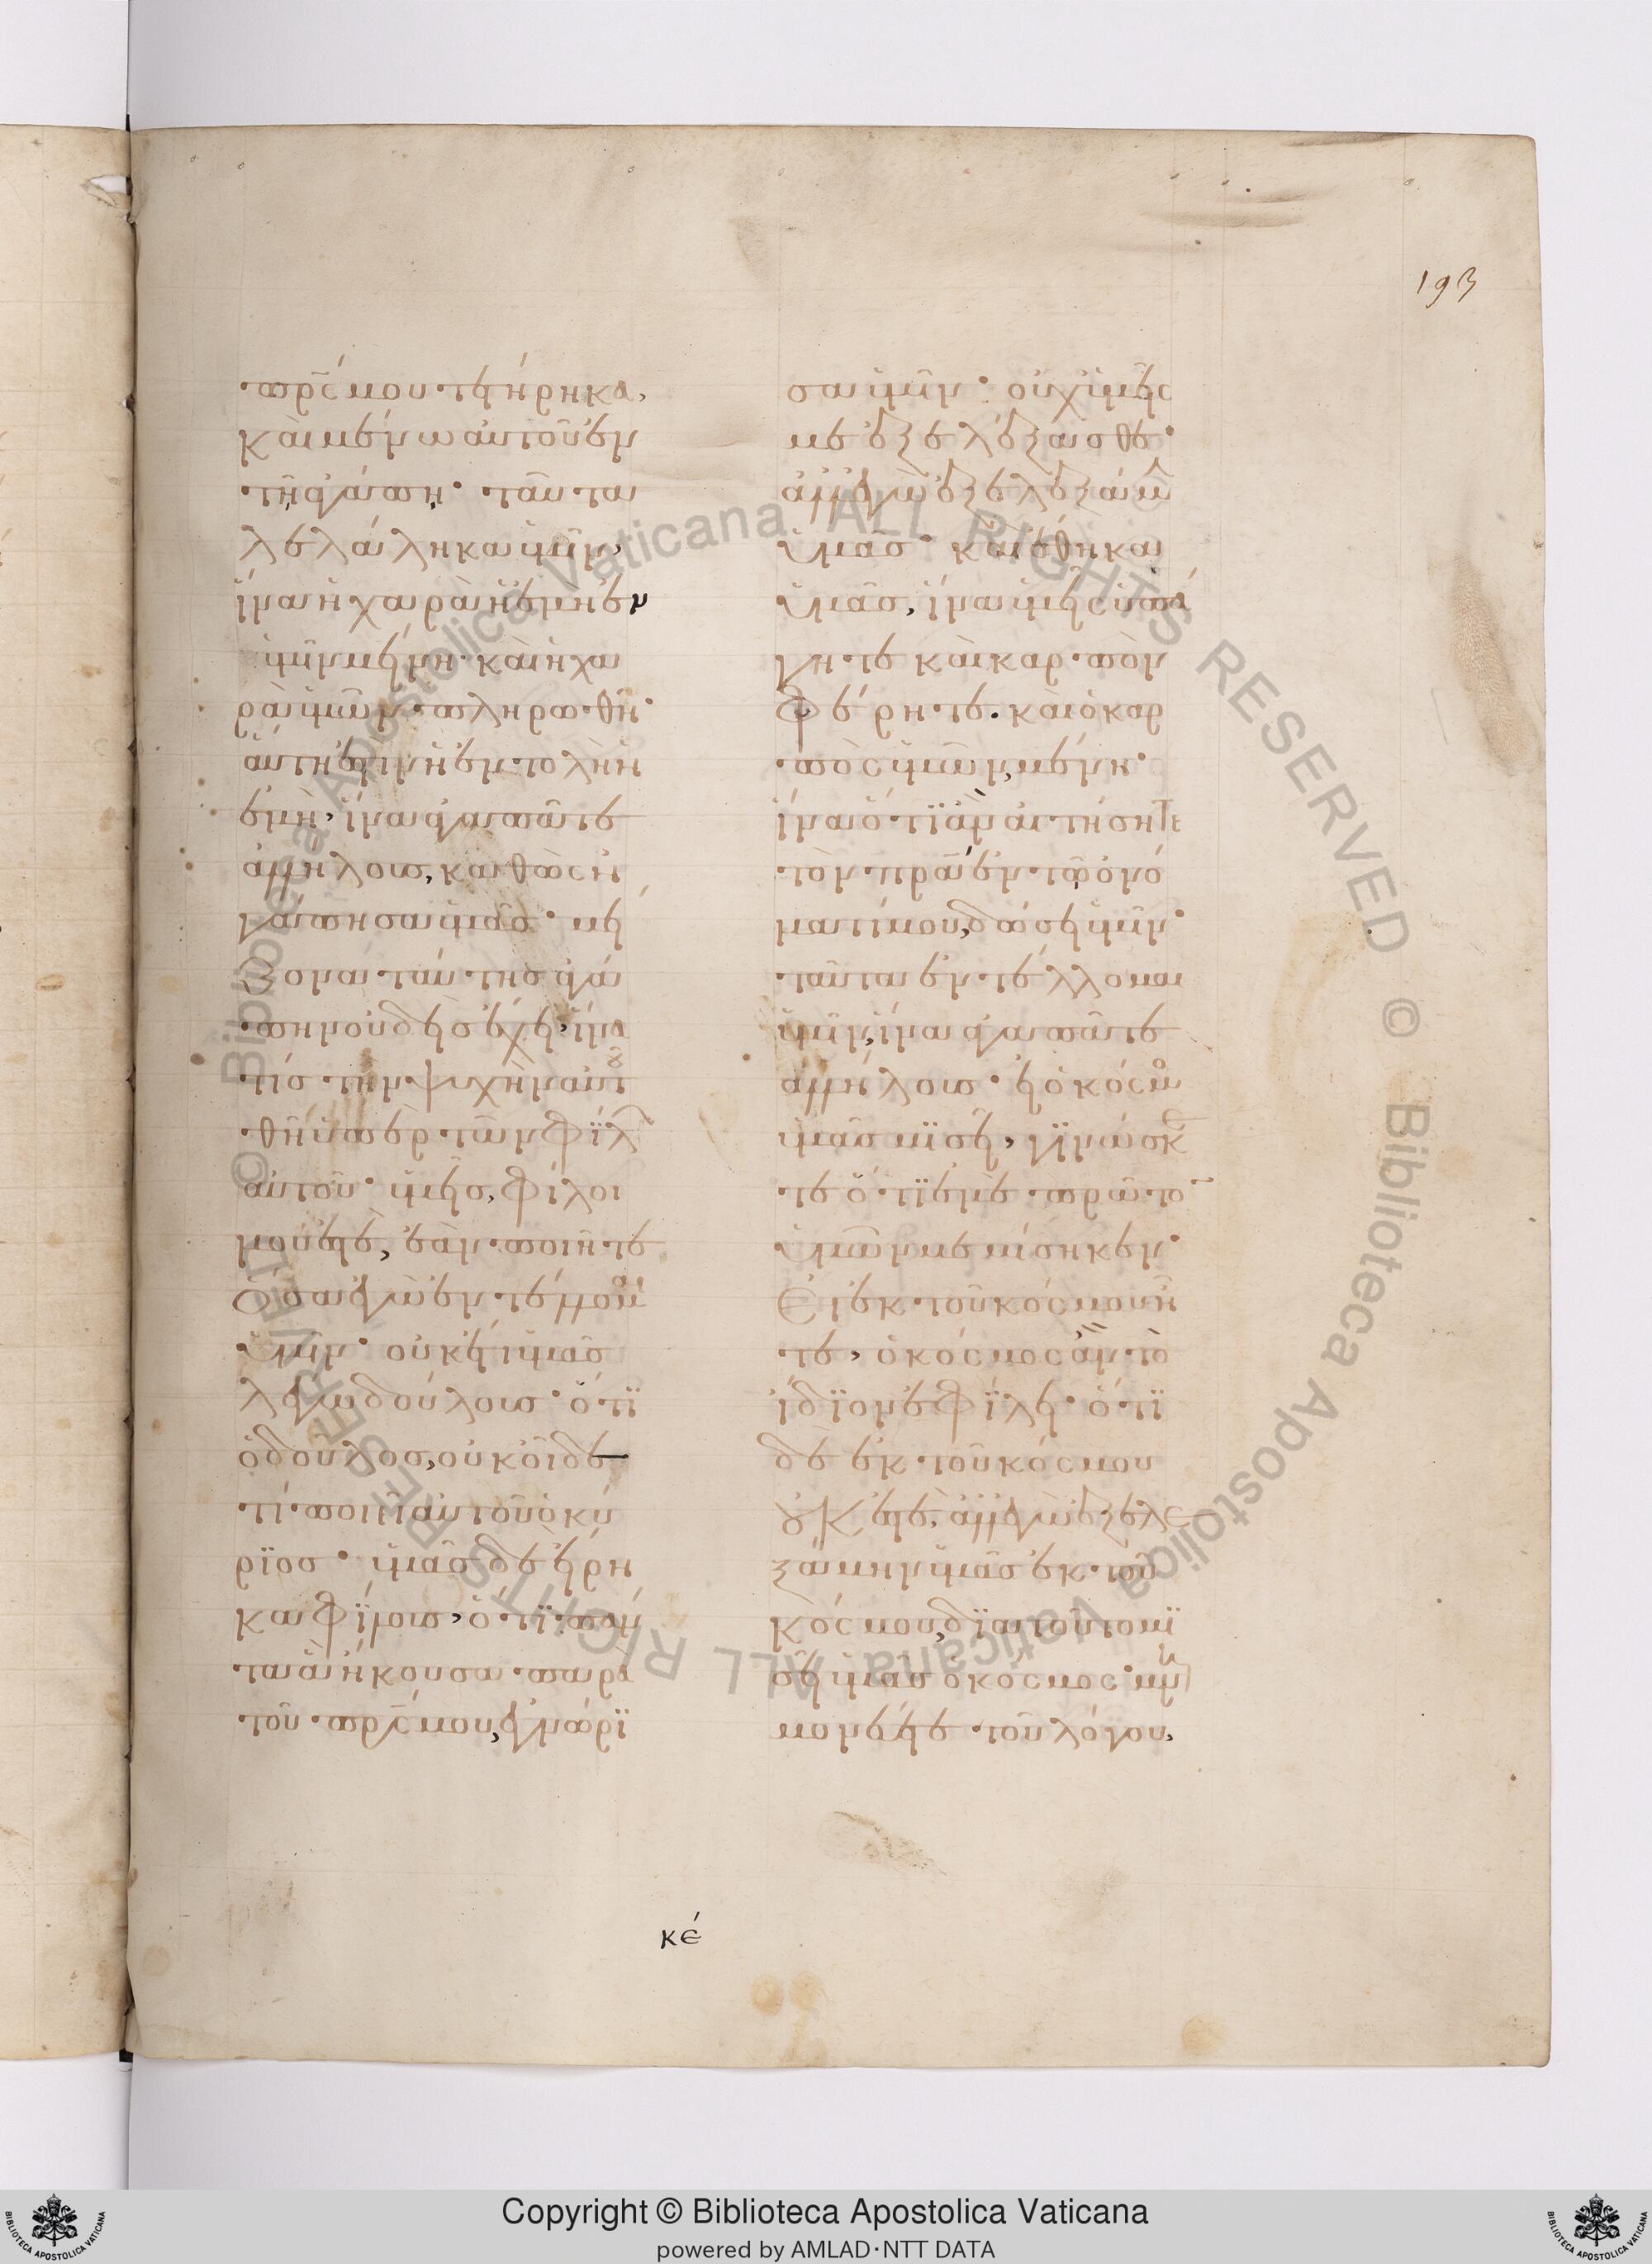 193
πρς μου τετήρηκα,
καὶ μένω αὐτοῦ ἐν
τῆ ἀγάπη· ταῦτα
λελάληκα ὑμῖν,
ἵνα ἡ χαρὰ ἡ ἐμὴ ἐν
ὑμῖν μείνη· καὶ ἡ χα
ρὰ ὑμῶν πληρωθῆ·
αὕτη ἐστιν ἡ ἐντολὴ ἡ
ἐμὴ, ἵνα ἀγαπᾶτε
ἀλλήλους, καθὼς ἠ
γάπησα ὑμᾶς· μεί
ζονα ταύτης ἀγά
πην οὐδεὶς ἔχει, ἵνα
τίς τὴν ψυχὴν αὐτοῦ
θῆ ὑπὲρ τῶν φίλων
αὐτοῦ· ὑμεῖς, φίλοι
μού ἐστὲ, ἐὰν ποιῆτε
ὅσα ἐγὼ ἐντέλλομαι
ὑμῖν· οὐκέτι ὑμᾶς
λέγω δούλους· ὅτϊ
ὁ δοῦλος, οὐκ οἶδε
τί ποιεῖ αὐτοῦ ὁ κύ
ρϊος· ὑμᾶς δὲ εἴρη
κα φίλους, ὅτϊ πάν
τα ἃ ἤκουσα παρὰ
τοῦ πρς μου, ἐγνώρϊ
σα ὑμῖν· οὐχ ὑμεῖς
με ἐξελέξασθε·
ἀλλ' ἐγὼ ἐξελεξάμην
ὑμᾶς· καὶ ἔθηκα
ὑμᾶς, ἵνα ὑμεῖς ὑπά
γητε καὶ καρπὸν
φέρητε. καὶ ὁ καρ
πὸς ὑμῶν, μένη·
ἵνα ὅ τϊ ἂν αἰτήσητε
τὸν πρα ἐν τῶ ὀνό
ματί μου, δώσει ὑμῖν·
ταῦτα ἐντέλλομαι
ὑμῖν, ἵνα ἀγαπᾶτε
ἀλλήλους· εἰ ὁ κόσμος
ὑμᾶς μϊσεῖ, γϊνώσκε
τε ὅτϊ ἐμὲ πρῶτον
ὑμῶν μεμίσηκεν·
Εἰ ἐκ τοῦ κόσμου ἦ
τε, ὁ κόσμος ἂν τὸ
ἴδϊον ἐφΐλει· ὅτϊ
δὲ ἐκ τοῦ κόσμου
οὐκ ἐστὲ, ἀλλ' ἐγὼ ἐξελε
ξάμην ὑμᾶς ἐκ τοῦ
κόσμου, δϊατοῦτο μϊ
σεῖ ὑμᾶς ὁ κόσμος· μνη
μονεύετε τοῦ λόγου,
κέ
© Biblioteca Apostolica Vaticana ALL RIGHTS RESERVED © Biblioteca Apostolica Vaticana ALL RIGHTS RESERVED
Copyright © Biblioteca Apostolica Vaticana
powered by AMLAD·NTT DATA
BIBLIOTECA APOSTOLICA VATICANA
BIBLIOTECA APOSTOLICA VATICANA